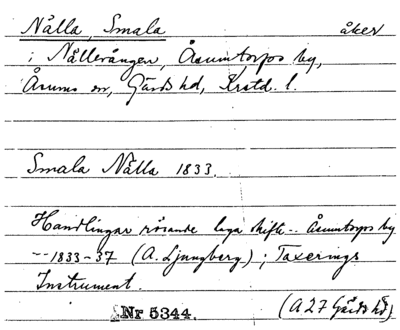 Nålla, Smala åker
i Nållevången, Åsumtorps by,
Åsums sn, Gärds hd, Krstd. l.
Smala Nålla 1833.
Handlingar rörande laga skifte -- Åsumtorps by
-- 1833-37 (A. Ljungberg); Taxerings
Instrument.
Nr 5344. (A27 Gärds hd)